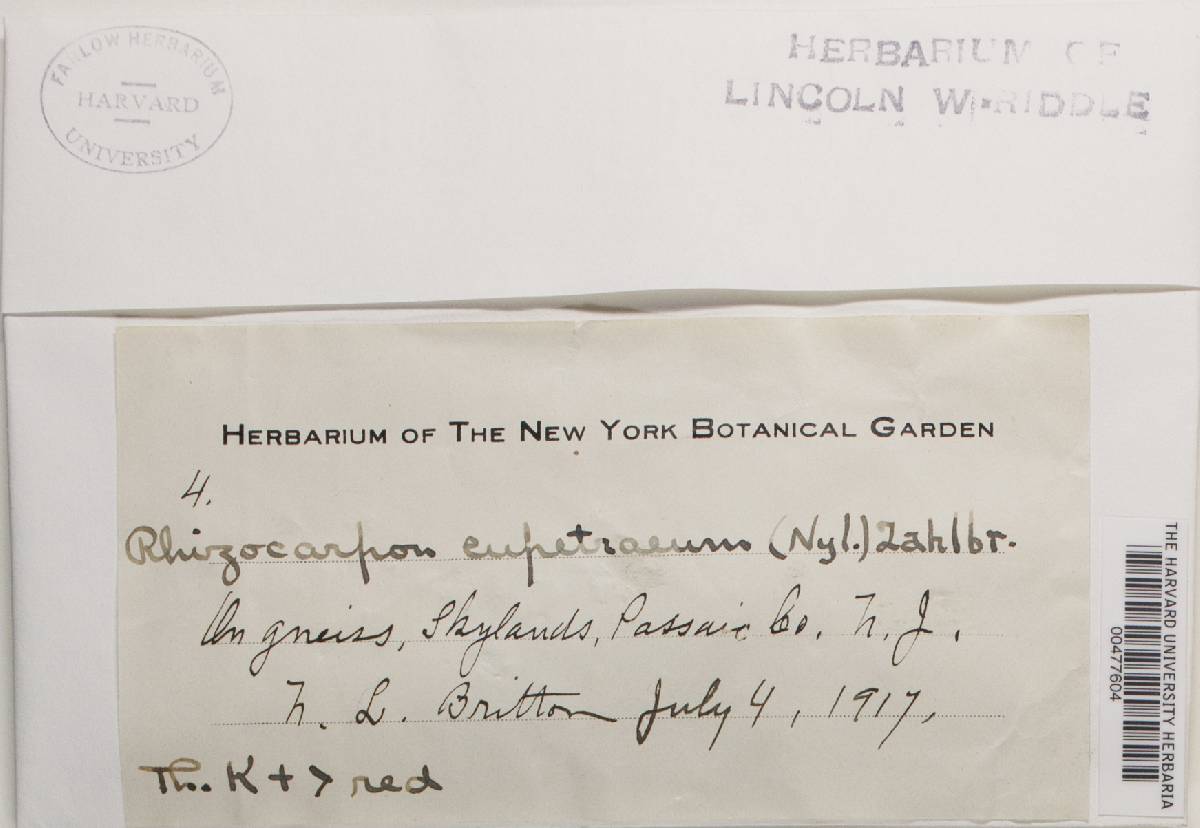 FARLOW HERBARIUM
HARVARD
UNIVERSITY
HERBARIUM OF
LINCOLN W. RIDDLE
HERBARIUM OF THE NEW YORK BOTANICAL GARDEN
4.
Rhizocarpon eupetraeum (Nyl.) Zahlbr.
On gneiss, Skylands, Passaic Co. N. J.
N. L. Britton July 4, 1917,
Th. K + > red
THE HARVARD UNIVERSITY HERBARIA
00477604